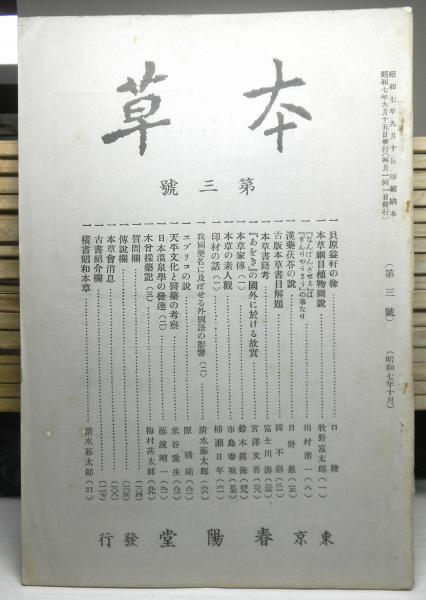 本草
第三號
昭和七年九月十日印刷納本
昭和七年九月十五日發行(每月一回一日發行)
(第三號)
(昭和七年十月)
一 貝原益軒の像……口繪
一 本草綱目植物圖說……牧野富太郎(一)
川村清一(八)
一 漢藥茯苓の說……日野巖
一 古版本草書目解題……岡不崩
一 本草書籍考……富士川游
一 「あをき」の國外に於ける故實……宮澤文吾
一 本草家傳(一)……鈴木眞海
一 本草の素人觀……市島春城
一 印材の話(一)……楠瀬日年
一 我國藥名に及ぼせる外國語の影響(二)……清水藤太郎
一 エブリコの說……原
一 天平文化と醫藥の考察……米谷愛生
一 日本溫泉學の發達(二)……藤浪剛一
一 木曾採藥記(三)……梅村甚太郎
一 質問欄
一 傳說欄
一 本草會消息
一 古書紹介欄
一 橫書昭和本草……清水藤太郎(21)
東京 春陽堂 發行